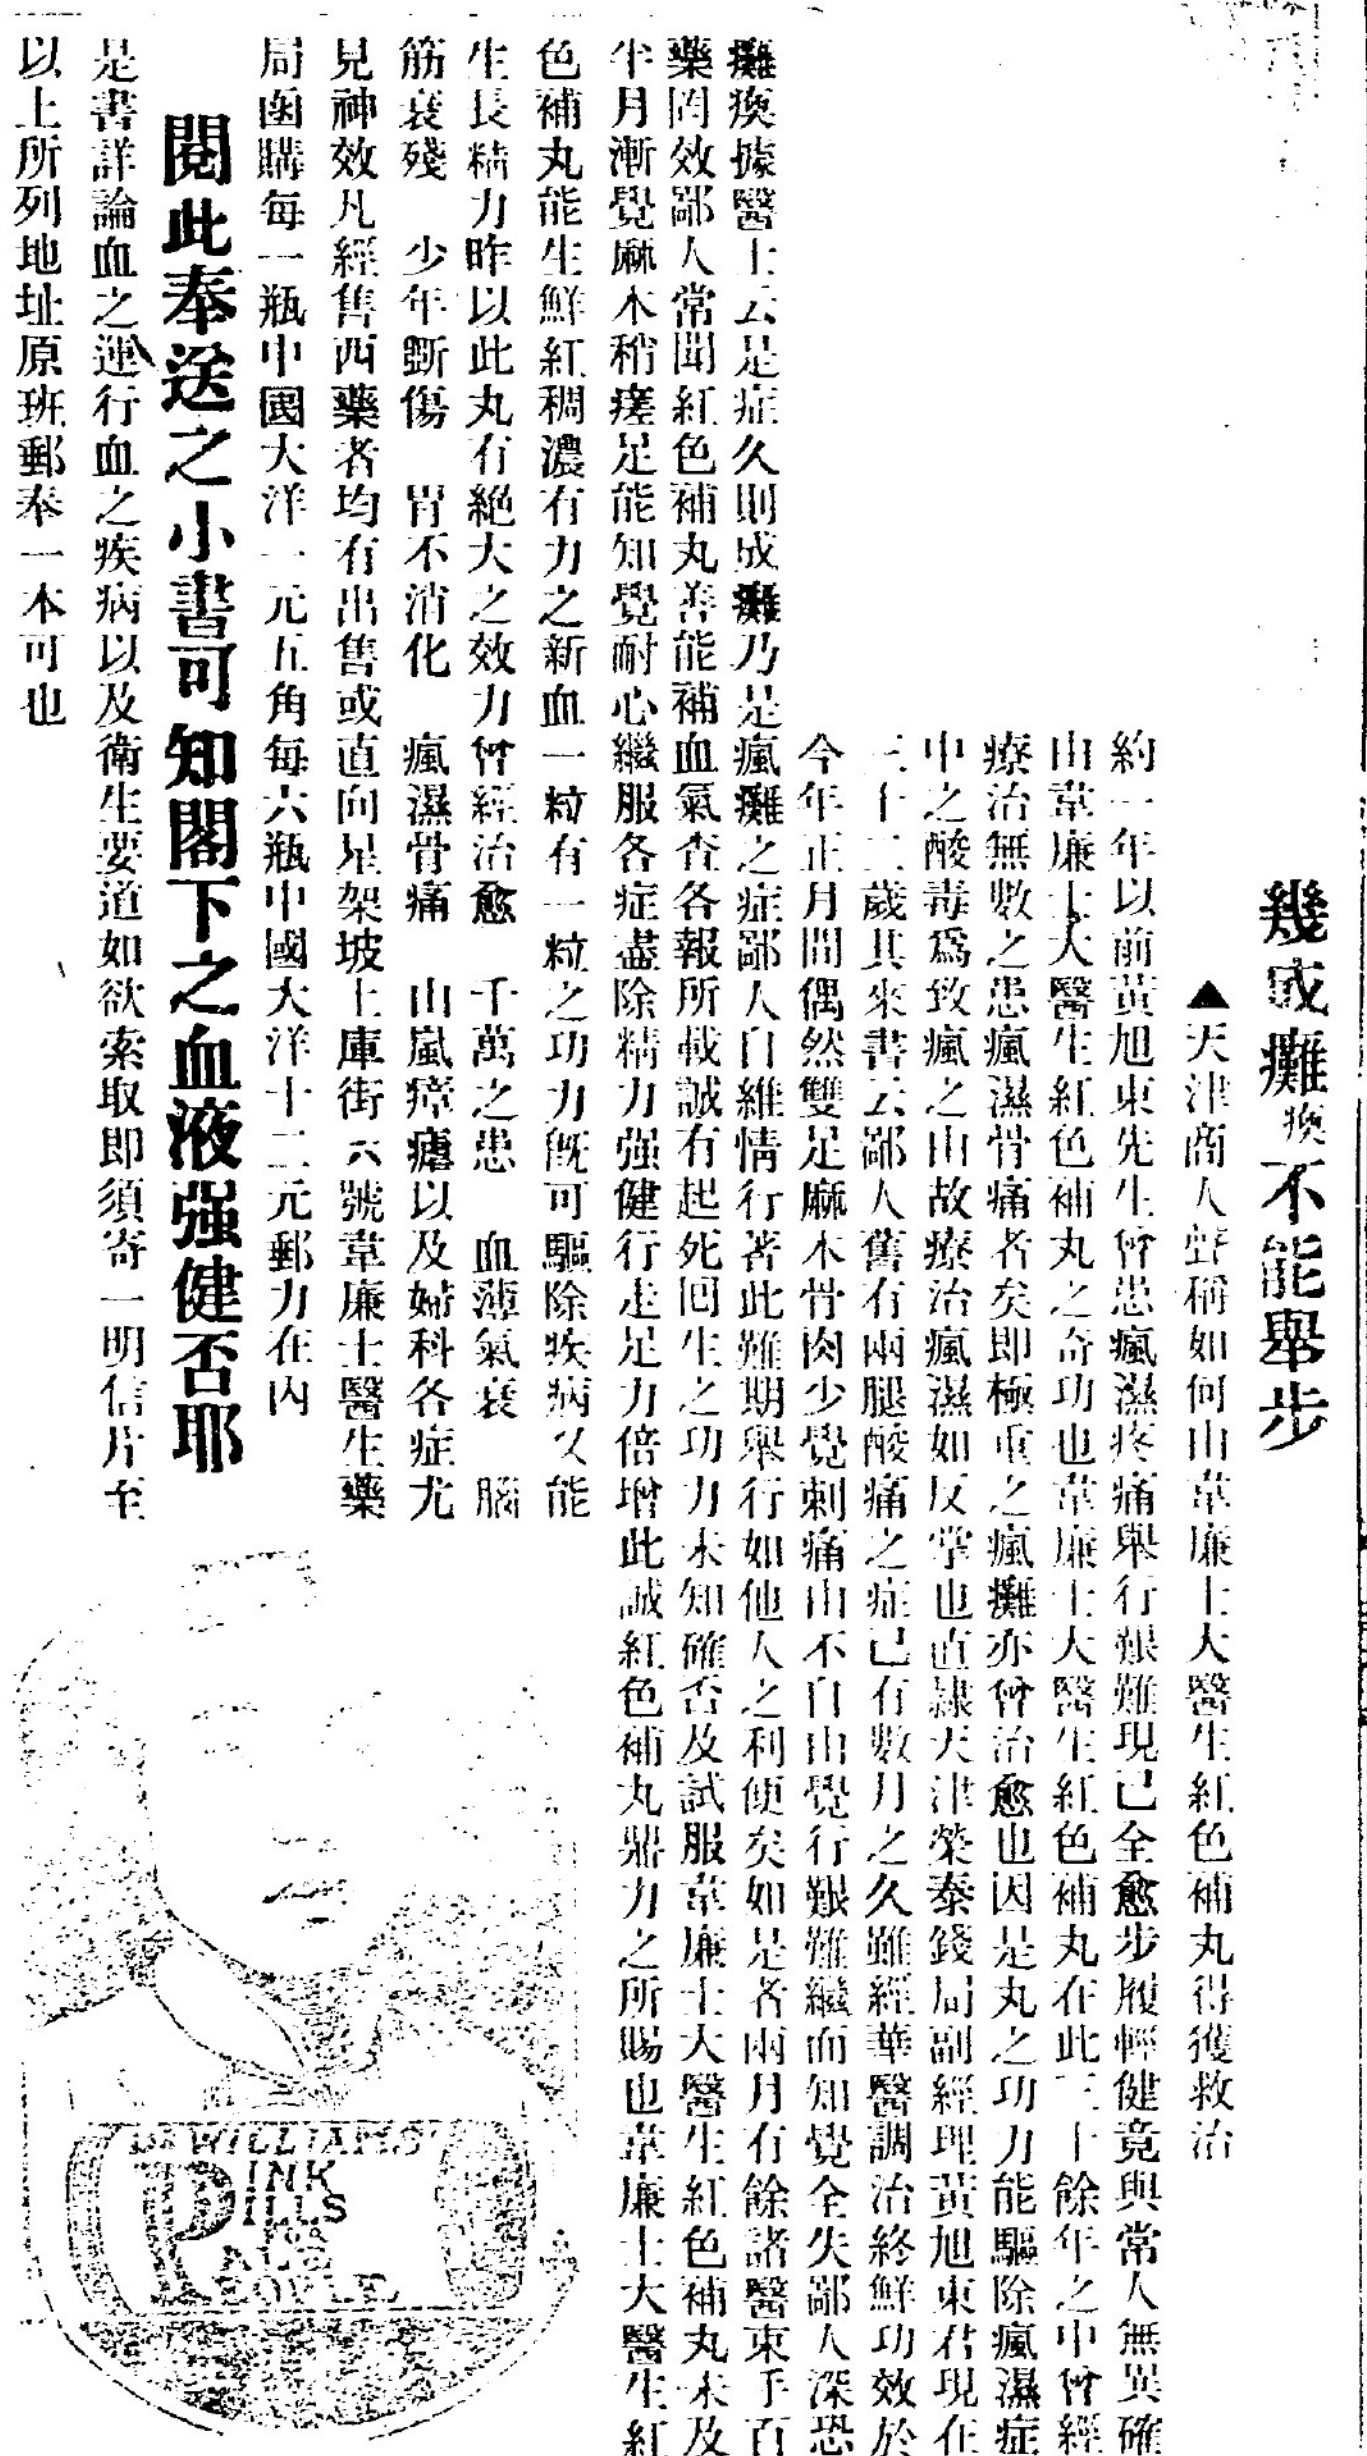 幾成癱瘓不能舉步
▲天津商人聲稱如何由韋廉士大醫生紅色補丸得獲救治
約一年以前黃旭東先生曾患瘋濕疼痛舉行艱難現已全愈步履輕健竟與常人無異確
由韋廉士大醫生紅色補丸之奇功也韋廉士大醫生紅色補丸在此三十餘年之中曾經
療治無數之患瘋濕骨痛者矣即極重之瘋癱亦曾治愈也因是丸之功力能驅除瘋濕症
中之酸毒爲致瘋之由故療治瘋濕如反掌也直隸天津榮泰錢局副經理黃旭東君現在
三十二歲其來書云鄙人舊有兩腿酸痛之症已有數月之久雖經華醫調治終鮮功效於
今年正月間偶然雙足麻木骨肉少覺刺痛由不自由覺行艱難繼而知覺全失鄙人深恐
癱瘓據醫士云是症久則成癱乃是瘋癱之症鄙人自維情行著此難期舉行如他人之利便矣如是者兩月有餘諸醫束手百
藥罔效鄙人常聞紅色補丸善能補血氣查各報所載誠有起死回生之功力未知確否及試服韋廉士大醫生紅色補丸未及
半月漸覺麻木稍瘥足能知覺耐心繼服各症盡除精力强健行走足力倍增此誠紅色補丸鼎力之所賜也韋廉士大醫生紅
色補丸能生鮮紅稠濃有力之新血一粒有一粒之功力旣可驅除疾病又能
生長精力昨以此丸有絕大之效力曾經治愈 千萬之患 血薄氣衰 腦
筋衰殘 少年斲傷 胃不消化 瘋濕骨痛 山嵐瘴瘧以及婦科各症尤
見神效凡經售西藥者均有出售或直向星架坡土庫街六號韋廉士醫生藥
局函購每一瓶中國大洋一元五角每六瓶中國大洋十二元郵力在內
閱此奉送之小書可知閣下之血液强健否耶
是書詳論血之運行血之疾病以及衛生要道如欲索取即須寄一明信片至
以上所列地址原班郵奉一本可也
DR WILLIAMS'
PINK
PILLS
FOR
PALE
PEOPLE